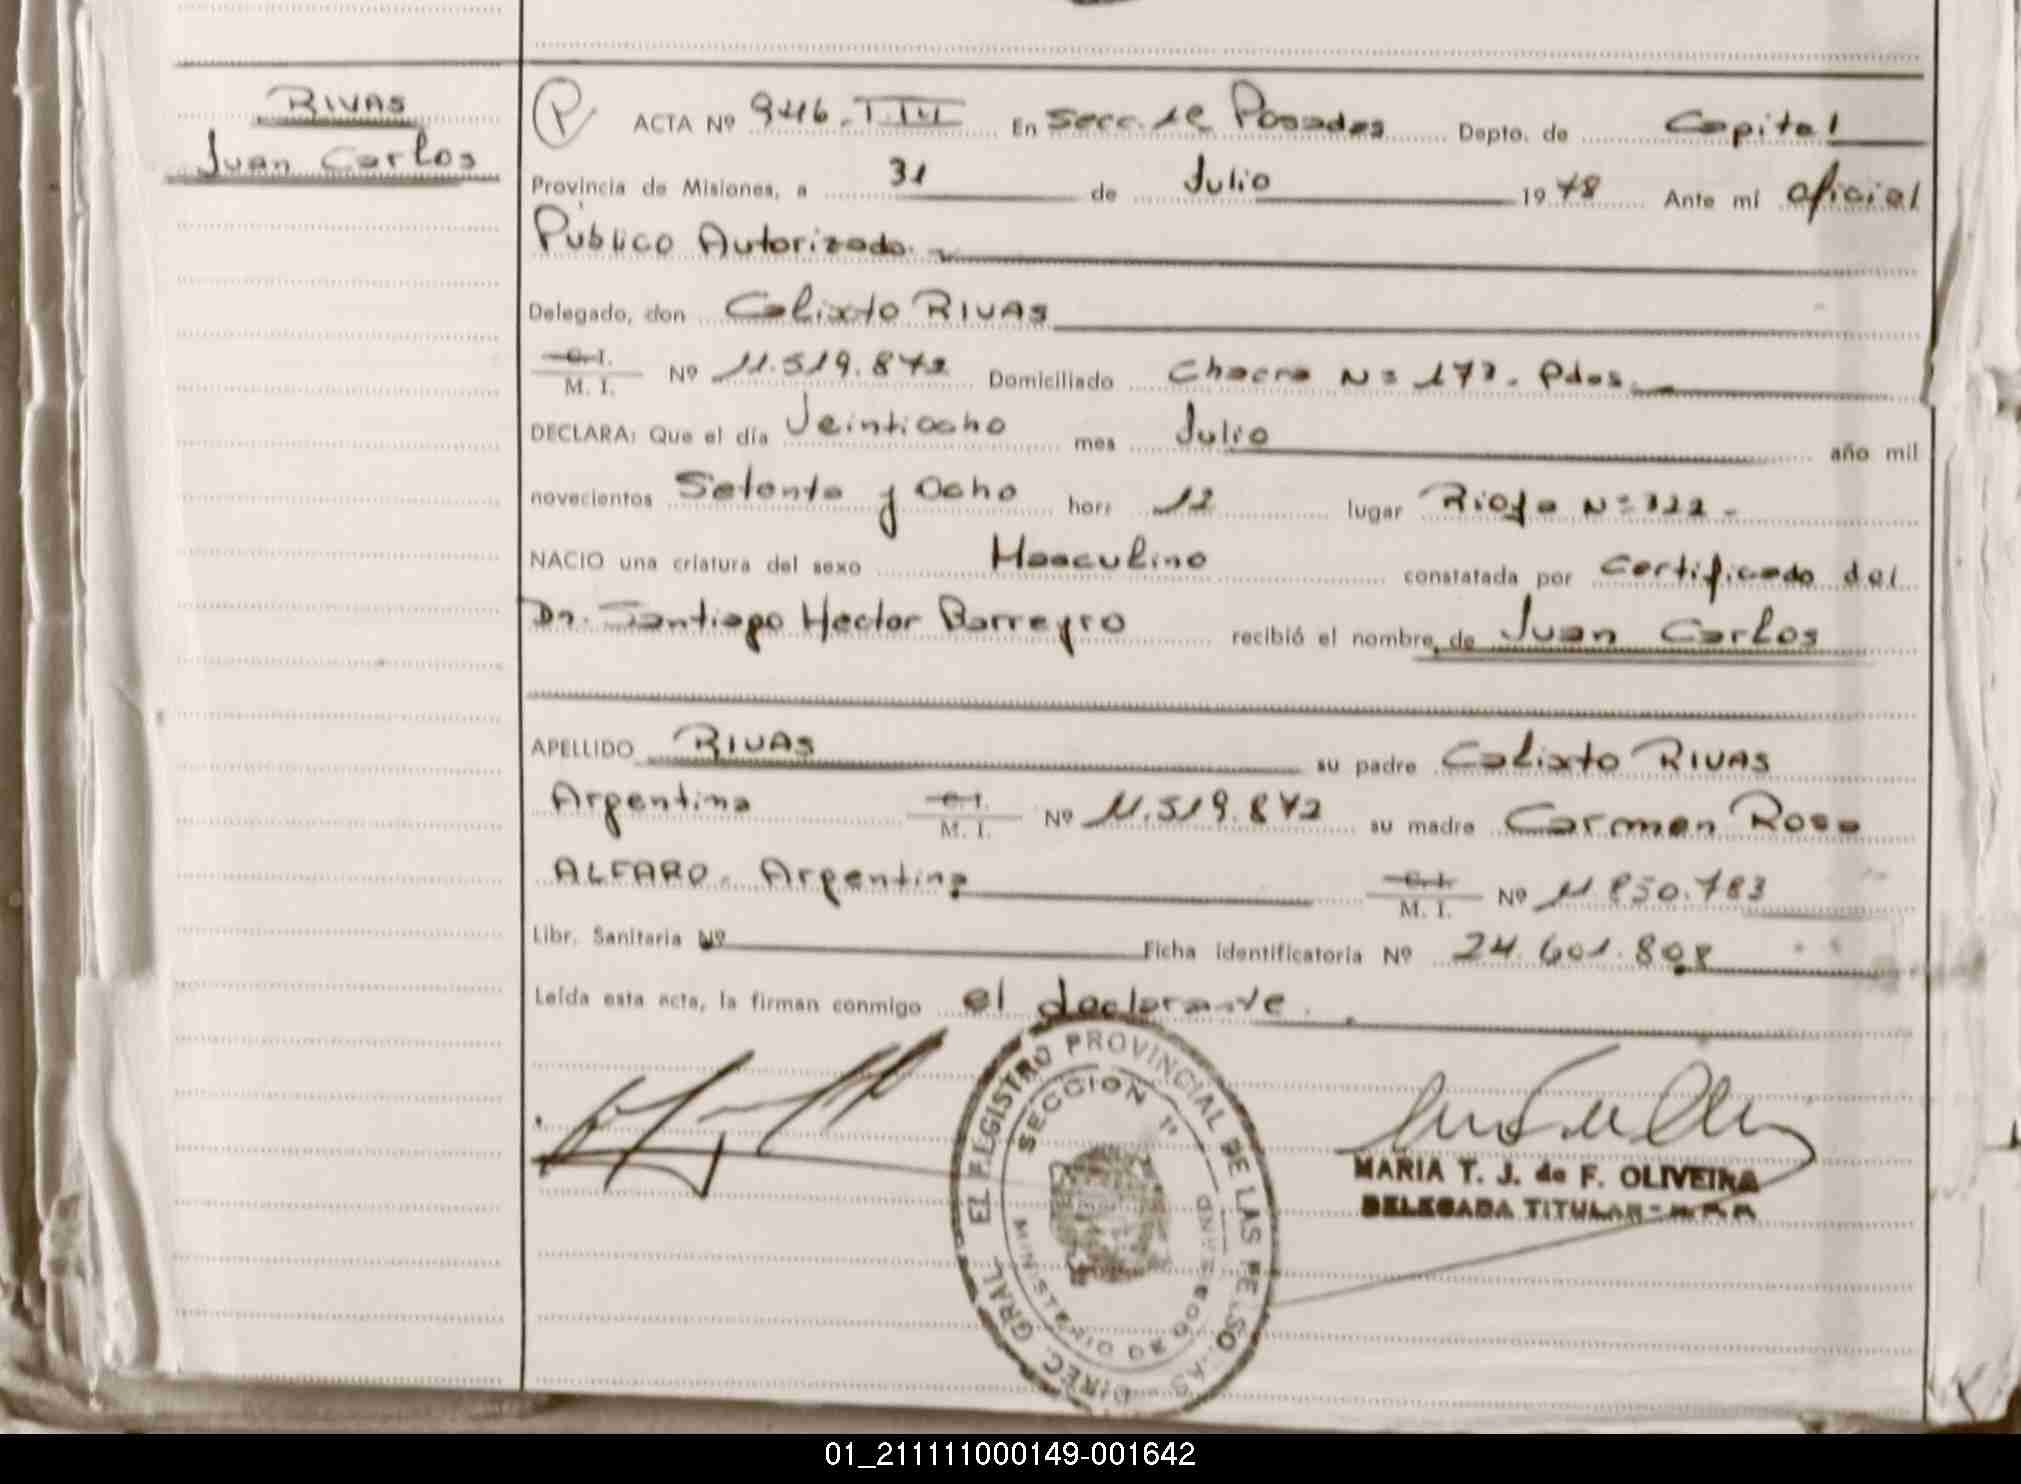 RIVAS
Juan Carlos
P ACTA Nº 946. T. III En Secc. 1ª Posadas Depto. de Capital
Provincia de Misiones, a 31 de Julio 1978 Ante mí Oficial
Público Autorizado.
Delegado, don Calixto RIVAS
C.I. M. I. Nº 11.519.872 Domiciliado Chacra Nº 177. Pdas.
DECLARA: Que el día Veintiocho mes Julio año mil
novecientos Setenta y Ocho hora 12 lugar Rioja Nº 322.
NACIO una criatura del sexo Masculino constatada por Certificado del
Dr. Santiago Hector Barreyro recibió el nombre de Juan Carlos
APELLIDO RIVAS su padre Calixto RIVAS
Argentina C.I. M. I. Nº 11.519.872 su madre Carmen Rosa
ALFARO. Argentina C.I. M. I. Nº 11.850.783
Libr. Sanitaria Nº Ficha identificatoria Nº 24.601.808
Leída esta acta, la firman conmigo el declarante.
DIREC. GRAL. REGISTRO PROVINCIAL DE LAS PERSONAS
SECCION 1ª
MINISTERIO DE GOBIERNO
MARIA T. J. de F. OLIVEIRA
DELEGADA TITULAR
01_211111000149-001642